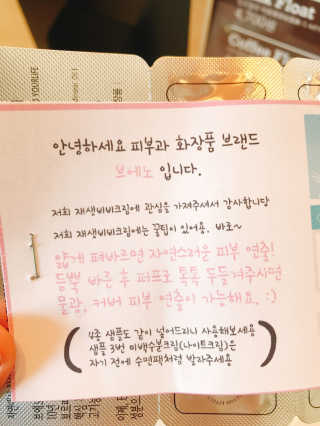 Float
4,700원
Coffee Float
안녕하세요 피부과 화장품 브랜드
브에노 입니다.
저희 재생비비크림에 관심을 가져주셔서 감사합니당
저희 재생비비크림에는 꿀팁이 있어용. 바로~
얇게 펴바르면 자연스러운 피부 연출!
듬뿍 바른 후 퍼프로 톡톡 두들겨주시면
물광, 커버 피부 연출이 가능해요. :)
4종 샘플도 같이 넣어드리니 사용해보세용
샘플 3번 미백수분크림(나이트크림)은
자기 전에 수면팩처럼 발라주세용